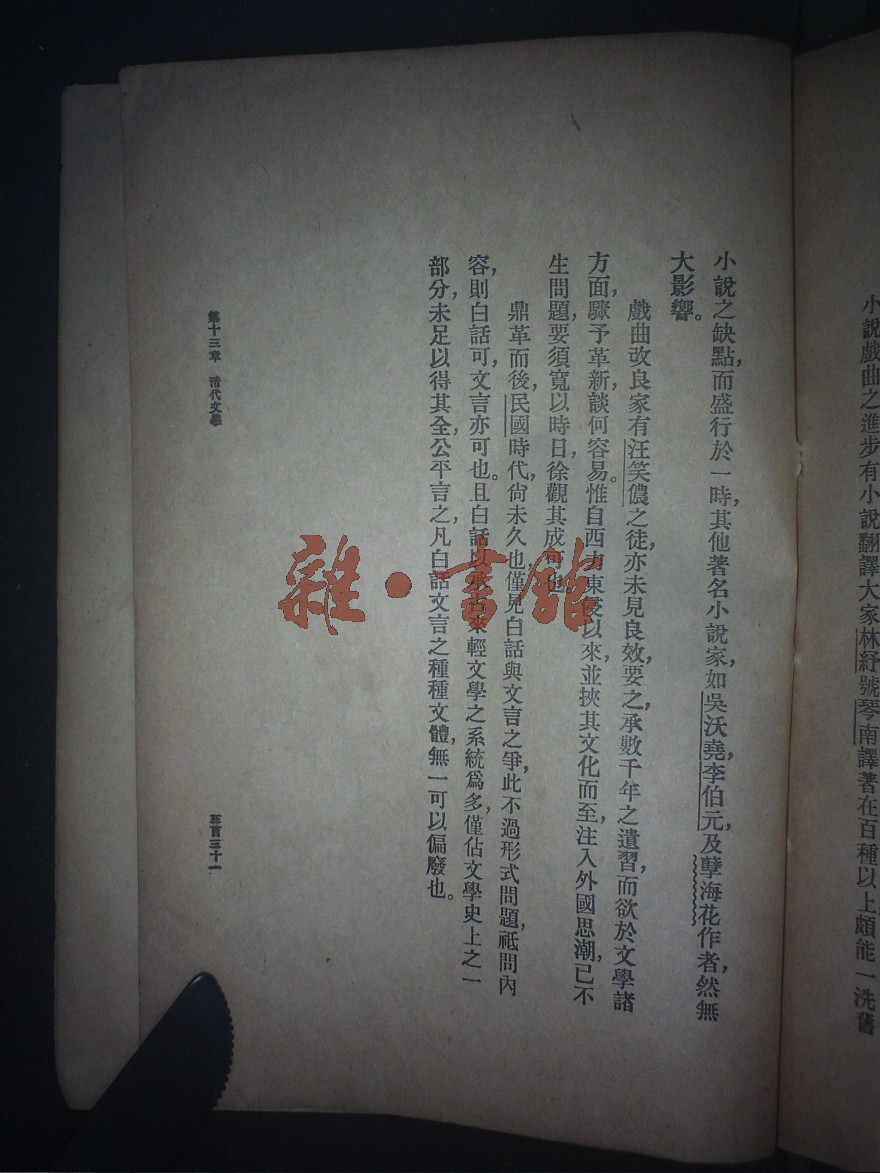 小說戲曲之進步有小說翻譯大家林紓號琴南譯著在百種以上頗能一洗舊
小說之缺點，而盛行於一時，其他著名小說家，如吳沃堯，李伯元，及孽海花作者，然無
大影響。
戲曲改良家有汪笑儂之徒，亦未見良效，要之，承數千年之遺習，而欲於文學諸
方面，驟予革新，談何容易。惟自西力東侵以來，並挾其文化而至，注入外國思潮，已不
生問題，要須寬以時日，徐觀其成可也。
鼎革而後，民國時代，尙未久也，僅見白話與文言之爭，此不過形式問題，祗問內
容，則白話可，文言亦可也。且白話以承古來輕文學之系統爲多，僅佔文學史上之一
部分，未足以得其全，公平言之，凡白話文言之種種文體，無一可以偏廢也。
第十三章 清代文學
三百三十一
雜·書館